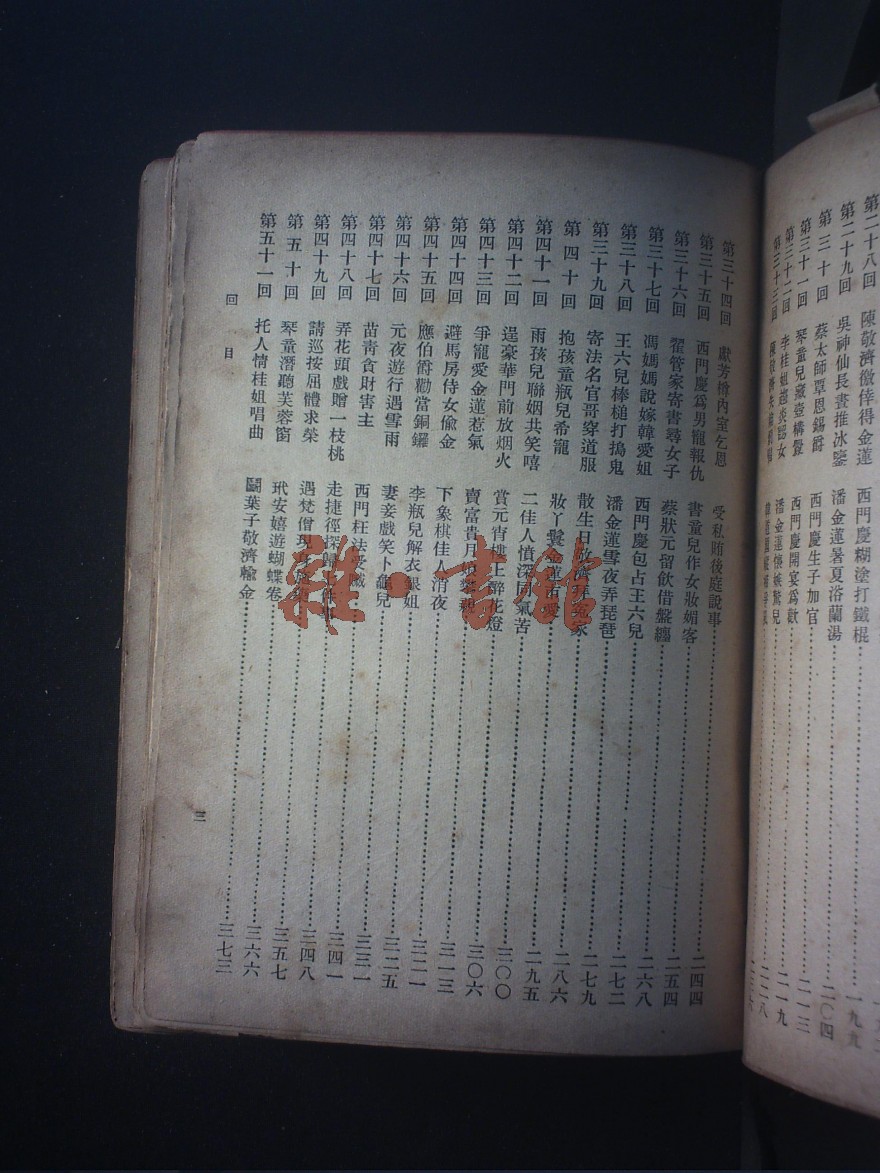 第二十八回 陳敬濟徼倖得金蓮 西門慶糊塗打鐵棍
第二十九回 吳神仙冰鑒 潘金蓮暑夏浴蘭湯 一九九
第三十回 蔡太師覃恩錫爵 西門慶生子加官 二〇四
第三十一回 琴童兒藏壺構釁 西門慶開宴爲歡 二一三
第三十二回 李桂姐認女 潘金蓮懷嫉驚兒 二一九
第三十三回 二二八
第三十四回 獻芳樽內室乞恩 受私賄後庭說事
第三十五回 西門慶爲男寵報仇 書童兒作女妝媚客 二四四
第三十六回 翟管家寄書尋女子 蔡狀元留飲借盤纏 二五四
第三十七回 馮媽媽說嫁韓愛姐 西門慶包占王六兒 二六八
第三十八回 王六兒棒槌打搗鬼 潘金蓮雪夜弄琵琶 二七二
第三十九回 寄法名官哥穿道服 散生日敬濟拜冤家 二七九
第四十回 抱孩童瓶兒希寵 妝丫鬟金蓮市愛 二八六
第四十一回 兩孩兒聯姻共笑嘻 二佳人憤深同氣苦 二九五
第四十二回 逞豪華門前放烟火 賞元宵樓上醉花燈 三〇〇
第四十三回 爭寵愛金蓮惹氣 賣富貴月娘攀親 三〇六
第四十四回 避馬房侍女偷金 下象棋佳人消夜 三一三
第四十五回 應伯爵勸當銅鑼 李瓶兒解衣銀姐 三二一
第四十六回 元夜遊行遇雪雨 妻妾戲笑卜龜兒 三二五
第四十七回 苗青貪財害主 西門枉法受贓 三三一
第四十八回 弄花頭戲贈一枝桃 走捷徑探歸七件事 三四一
第四十九回 請巡按屈體求榮 遇梵僧現身施藥 三四八
第五十回 琴童潛聽芙蓉窗 玳安嬉遊蝴蝶巷 三五七
第五十一回 托人情桂姐唱曲 三六六
鬭葉子敬濟輸金 三七三
回目
三
雜·書館